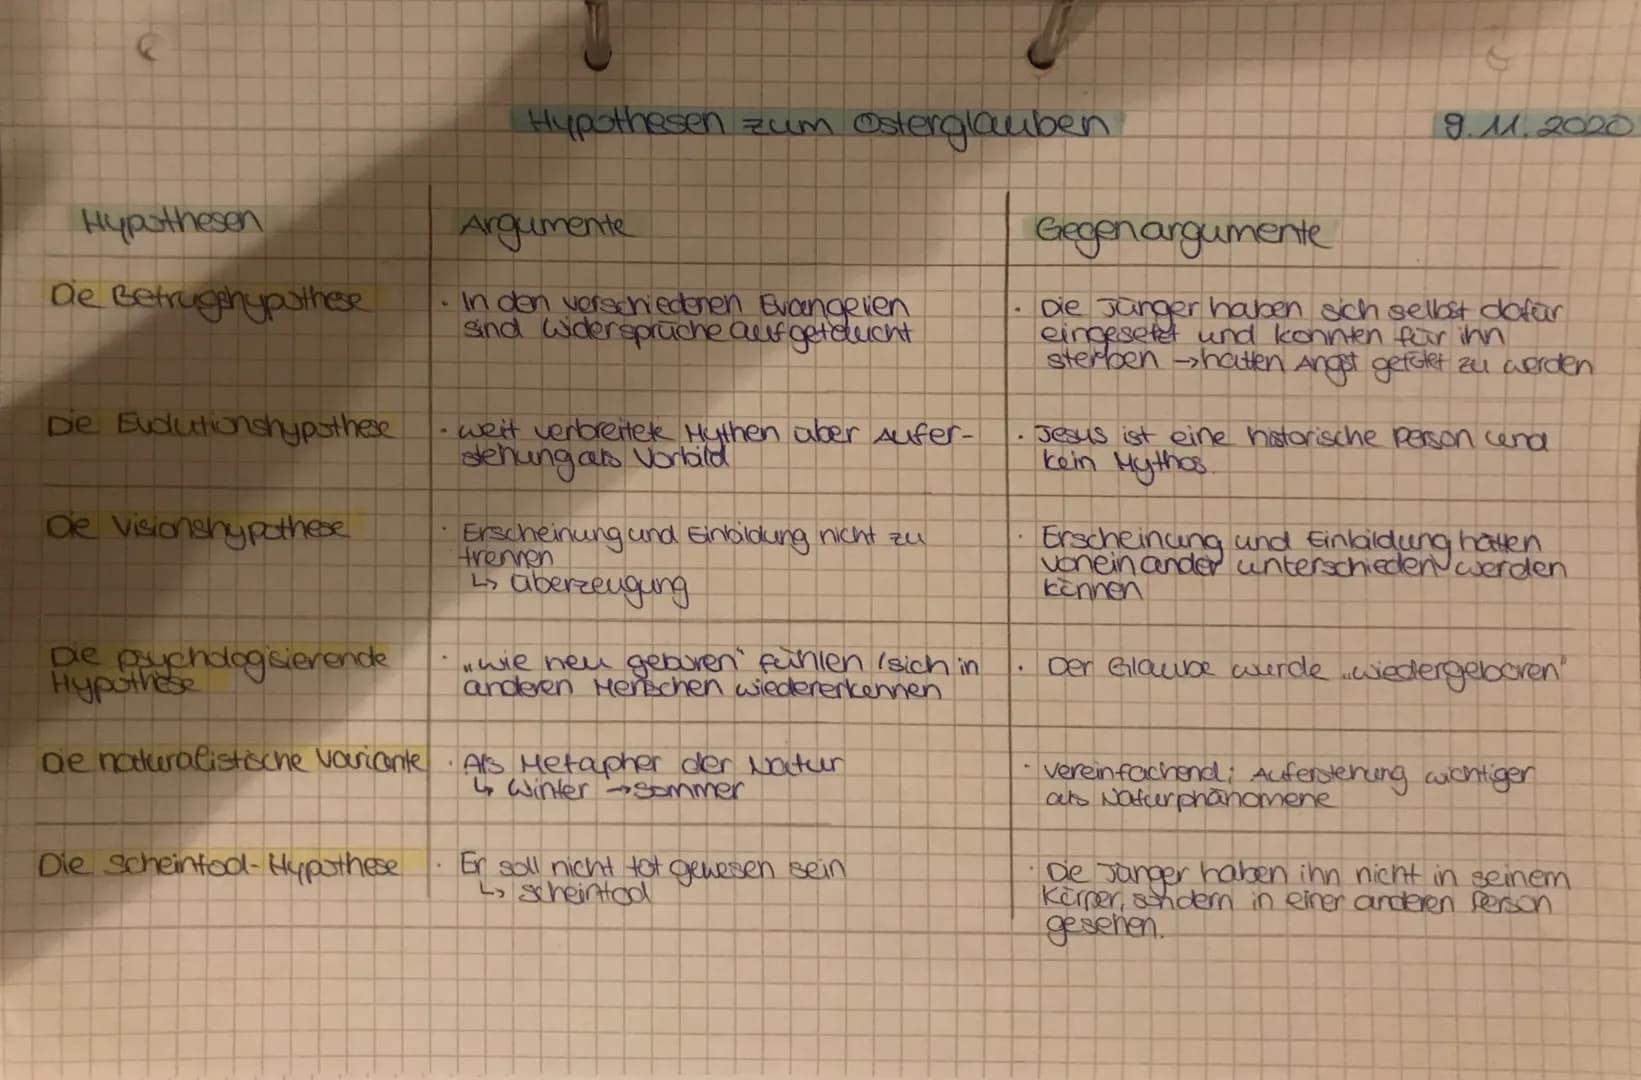 Hypothesen zum Osterglauben
9.11.2020
Hypothesen
Argumente
Gegenargumente
Die Betrugshypothese
· In den verschiedenen Evangelien
sind Widersprüche aufgetaucht
· Die Jünger haben sich selbst dafür
eingesetzt und konnten für ihn
sterben → hatten Angst getötet zu werden
Die Evolutionshypothese
· weit verbreitete Mythen über Aufer-
stehung als Vorbild
· Jesus ist eine historische Person und
kein Mythos
Die Visionshypothese
· Erscheinung und Einbildung nicht zu
trennen
↳ Überzeugung
· Erscheinung und Einbildung hätten
voneinander unterschieden werden
können
Die psychologisierende
Hypothese
· „wie neu geboren" fühlen / sich in
anderen Menschen wiedererkennen
· Der Glaube wurde „wiedergeboren"
Die naturalistische Variante
· Als Metapher der Natur
↳ Winter → Sommer
· vereinfachend; Auferstehung wichtiger
als Naturphänomene
Die Scheintod-Hypothese
· Er soll nicht tot gewesen sein
↳ Scheintod
· Die Jünger haben ihn nicht in seinem
Körper, sondern in einer anderen Person
gesehen.